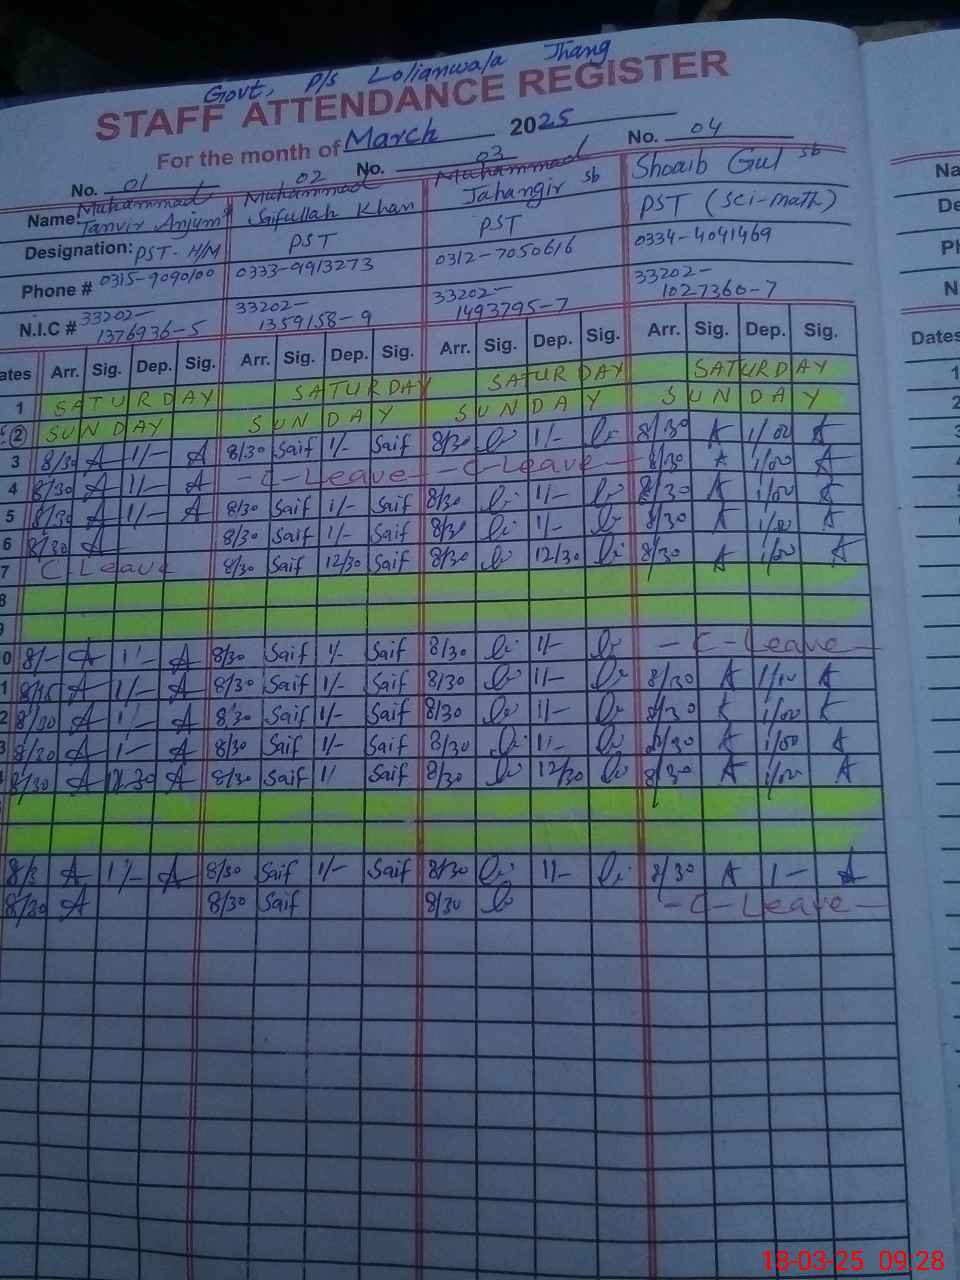 Govt, P/s Lolianwala Jhang
STAFF ATTENDANCE REGISTER
For the month of March 2025
No. 01 02 No. 03 No. 04
Name: Muhammad Tanvir Anjum Muhammad Saifullah Khan Muhammad Jahangir sb Shoaib Gul sb
Designation: PST-H/M PST PST PST (Sci-math)
Phone # 0315-9090100 0333-9913273 0312-7050616 0334-4041469
N.I.C # 33202-1376936-5 33202-1359158-9 33202-1493795-7 33202-1027360-7
ates Arr. Sig. Dep. Sig. Arr. Sig. Dep. Sig. Arr. Sig. Dep. Sig. Arr. Sig. Dep. Sig.
1 SATURDAY SATURDAY SATURDAY SATURDAY
2 SUNDAY SUNDAY SUNDAY SUNDAY
3 8/30 A 1/- A 8/30 Saif 1/- Saif 8/30 1/- 8/30 A 1/00 A
4 8/30 A 1/- A -C-Leave- -C-Leave- 8/30 A 1/00 A
5 8/30 A 1/- A 8/30 Saif 1/- Saif 8/30 1/- 8/30 A 1/00 A
6 8/30 A 8/30 Saif 1/- Saif 8/30 1/- 8/30 A 1/00 A
7 C-Leave 8/30 Saif 12/30 Saif 8/30 12/30 8/30 A 1/00 A
8
9
0 8/- A 1/- A 8/30 Saif 1/- Saif 8/30 1/- -C-Leave-
1 8/15 A 1/- A 8/30 Saif 1/- Saif 8/30 1/- 8/30 A 1/00 A
2 8/30 A 1/- A 8/30 Saif 1/- Saif 8/30 1/- 8/30 A 1/00 A
3 8/30 A 1- A 8/30 Saif 1/- Saif 8/30 1/- 8/30 A 1/00 A
8/30 A 12-30 A 8/30 Saif 1/ Saif 8/30 12/30 8/30 A 1/00 A
8/3 A 1/- A 8/30 Saif 1/- Saif 8/30 1/- 8/30 A 1- A
8/30 A 8/30 Saif 8/30 -C-Leave-
Na
De
Ph
N
Dates
1
2
3
18-03-25 09:28